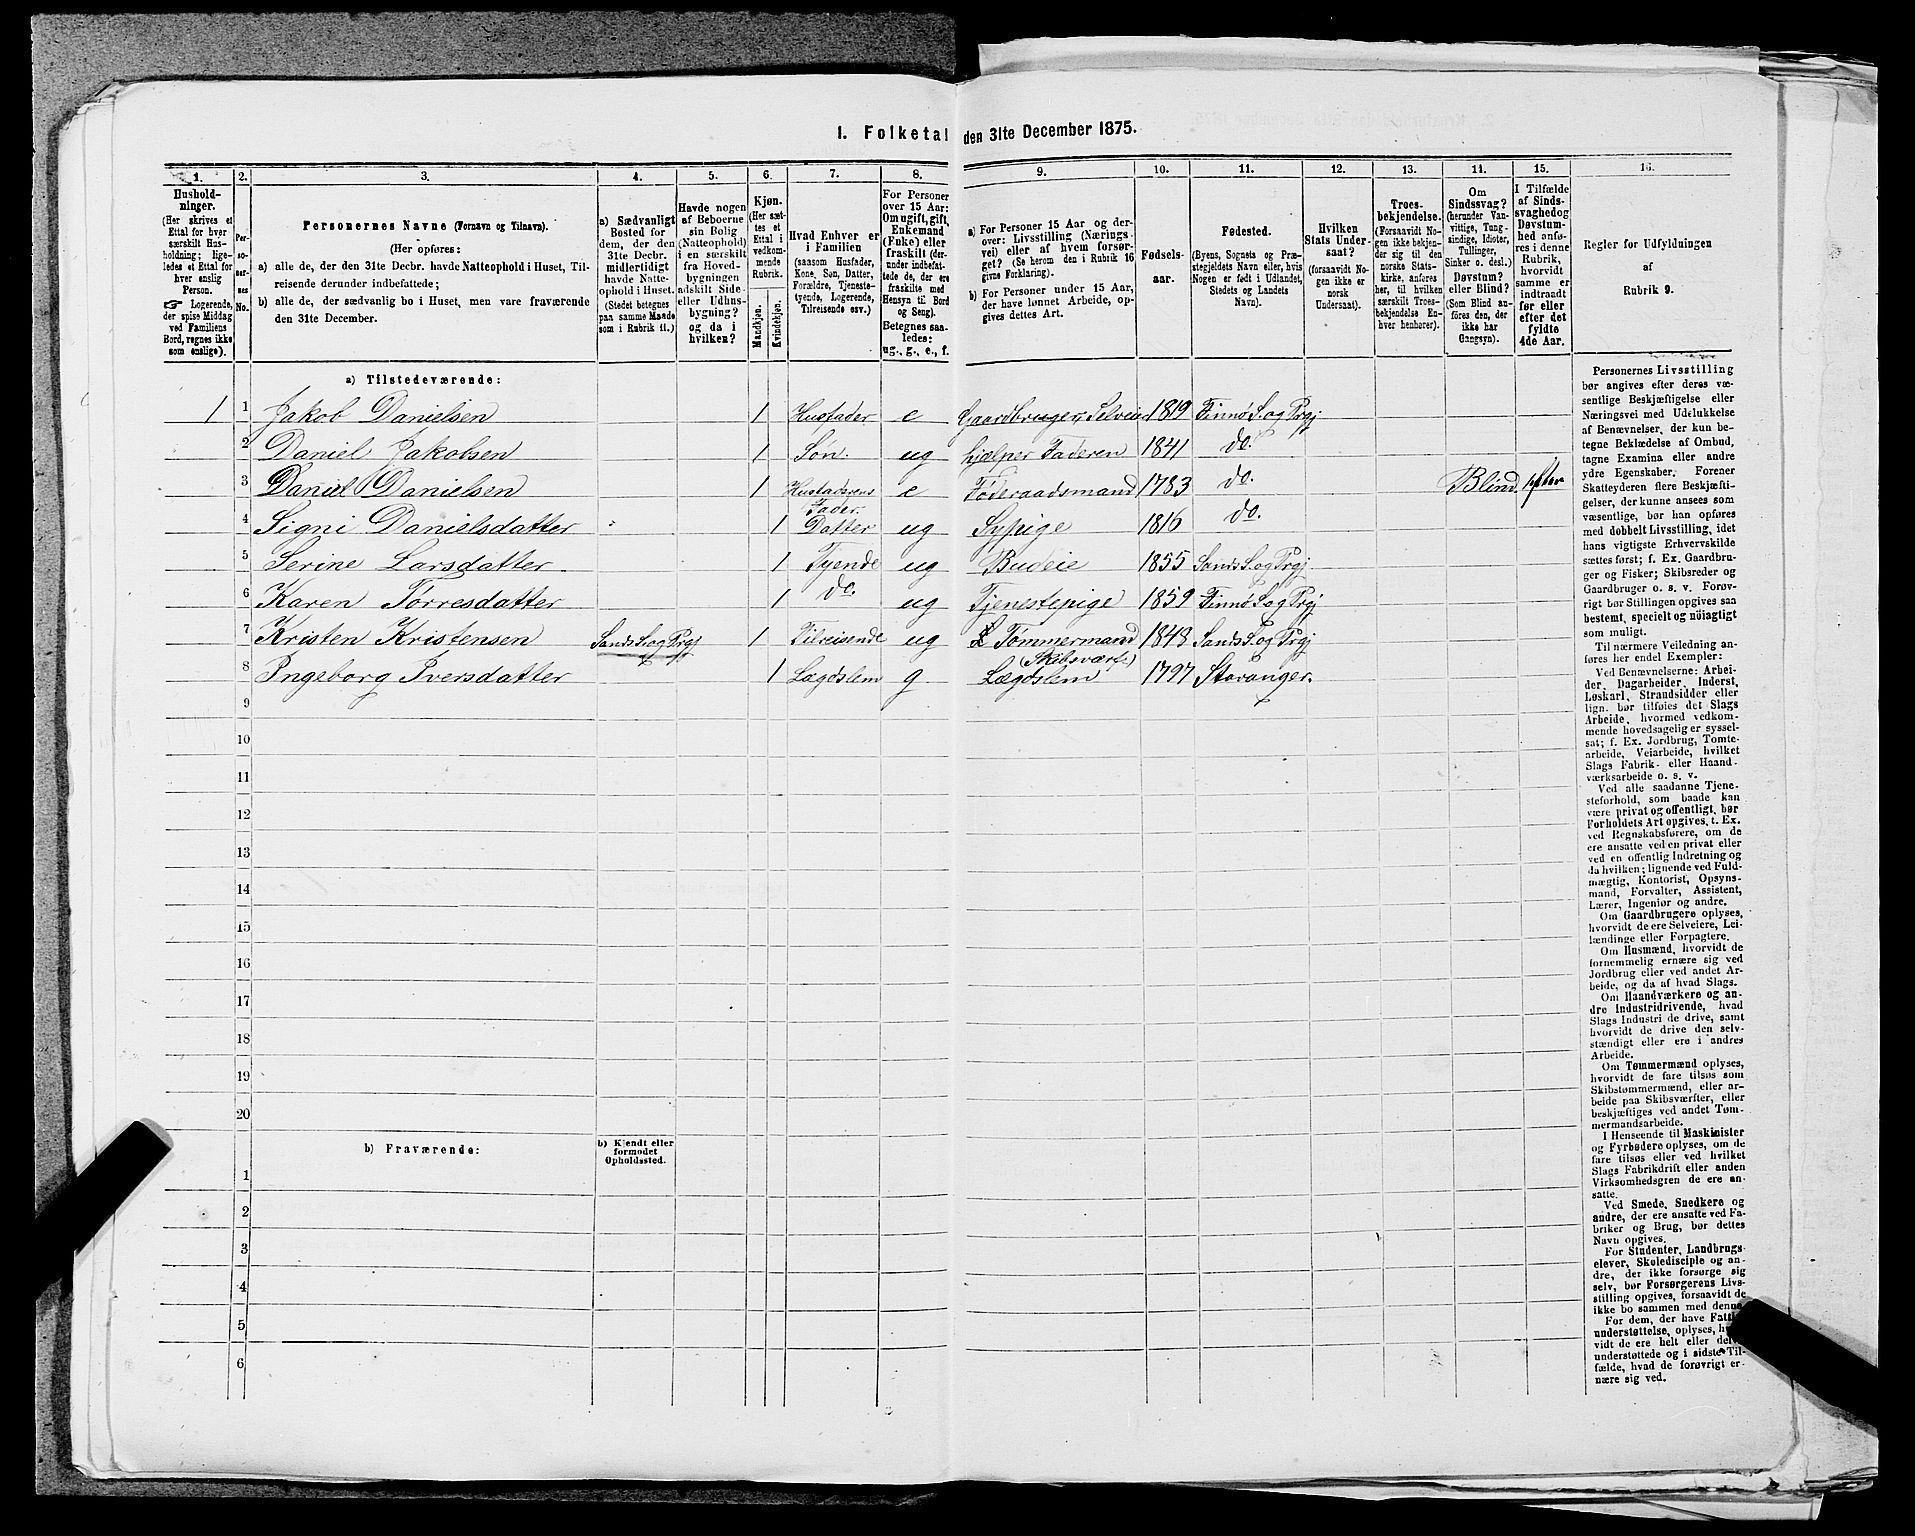 1. Folketal den 31te December 1875.
1. 2. 3. 4. 5. 6. 7. 8. 9. 10. 11. 12. 13. 14. 15. 16.
Husholdninger.
(Her skrives et
Ettal for hver
særskilt Husholdning;
ligeledes et Ettal for
hver enslig
Person.
☞ Logerende,
der spise Middag
ved Familiens
Bord, regnes ikke
som enslige).
Personernes No.
Personernes Navne (Fornavn og Tilnavn).
(Her opføres:
a) alle de, der den 31te Decbr. havde Natteophold i Huset, Tilreisende
derunder indbefattede;
b) alle de, der sædvanlig bo i Huset, men vare fraværende
den 31te December.
a) Sædvanligt
Bosted for
dem, der den
31te Decbr.
midlertidigt
havde Natteophold
i Huset.
(Stedet betegnes
paa samme Maade
som i Rubrik 11.)
Havde nogen
af Beboerne
sin Bolig
(Natteophold)
i en særskilt
fra Hovedbygningen
adskilt Side-
eller Udhusbygning?
og da i
hvilken?
Kjøn.
(Her sættes
et Ettal i
vedkommende
Rubrik.
Mandkjøn.
Kvindekjøn.
Hvad Enhver er
i Familien
(saasom Husfader,
Kone, Søn, Datter,
Forældre, Tjenestetyende,
Logerende,
Tilreisende osv.)
For Personer
over 15 Aar:
Om ugift, gift,
Enkemand
(Enke) eller
fraskilt (derunder
indbefattede
de, der ere
fraskilte med
Hensyn til Bord
og Seng).
Betegnes saaledes:
ug., g., e., f.
a) For Personer 15 Aar og derover:
Livsstilling (Næringsvei)
eller af hvem forsørget?
(Se herom den i Rubrik 16
givne Forklaring).
b) For Personer under 15 Aar,
der have lønnet Arbeide, opgives
dettes Art.
Fødselsaar.
Fødested.
(Byens, Sognets og Præstegjeldets
Navn eller, hvis
Nogen er født i Udlandet,
Stedets og Landets
Navn).
Hvilken
Stats Undersaat?
(forsaavidt Nogen
ikke er
norsk
Undersaat).
Troesbekjendelse.
(Forsaavidt Nogen
ikke bekjender
sig til den
norske Statskirke,
anføres
her, til hvilken
særskilt Troesbekjendelse
Enhver
henhører).
Om
Sindssvag?
(herunder Vanvittige,
Tungsindige,
Idioter,
Tullinger,
Sinker o. desl.)
Døvstum?
eller Blind?
(Som Blind anføres
den, der
ikke har
Gangsyn).
I Tilfælde
af Sindssvaghed
og
Døvstumhed
anføres
i denne
Rubrik,
hvorvidt
samme er
indtraadt
før eller
efter det
fyldte
4de Aar.
Regler for Udfyldningen
af
Rubrik 9.
a) Tilstedeværende:
1 1 Jakob Danielsen 1 Husfader e Gaardbruger, Selveier 1819 Finnø S. og Prgj
2 Daniel Jakobsen 1 Søn. ug hjælper Faderen 1841 do.
3 Daniel Danielsen 1 Husfaderens Fader. e Føderaadsmand 1783 do. Blind. efter
4 Signi Danielsdatter 1 Datter ug Sypige 1816 do.
5 Serine Larsdatter 1 Tyende ug Budeie 1855 Sands S. og Prgj
6 Karen Torresdatter 1 do. ug Tjenestepige 1859 Finnø S. og Prgj
7 Kristen Kristensen Sands S. og Prgj 1 Tilreisende ug Tømmermand (Skibsværft) 1848 Sands S. og Prgj
8 Ingeborg Iversdatter 1 Lægdslem g. Lægdslem 1797 Stavanger.
9
10
11
12
13
14
15
16
17
18
19
20
b) Fraværende:
b) Kjendt eller
formodet
Opholdssted.
1
2
3
4
5
6
Personernes Livsstilling
bør angives efter deres væsentlige
Beskjæftigelse eller
Næringsvei med Udelukkelse
af Benævnelser, der kun betegne
Beklædelse af Ombud,
tagne Examina eller andre
ydre Egenskaber. Forener
Skatteyderen flere Beskjæftigelser,
der kunne ansees som
væsentlige, bør han opføres
med dobbelt Livsstilling, idet
hans vigtigste Erhvervskilde
sættes først; f. Ex. Gaardbruger
og Fisker; Skibsreder og
Gaardbruger o. s. v. Forøvrigt
bør Stillingen opgives saa
bestemt, specielt og nøiagtigt
som muligt.
Til nærmere Veiledning anføres
her endel Exempler:
Ved Benævnelserne: Arbeider,
Dagarbeider, Inderst,
Løskarl, Strandsidder eller
lign. bør tilføies det Slags
Arbeide, hvormed vedkommende
hovedsagelig er sysselsat;
f. Ex. Jordbrug, Tomtearbeide,
Veiarbeide, hvilket
Slags Fabrik- eller Haandværksarbeide
o. s. v.
Ved alle saadanne Tjenesteforhold,
som baade kan
være privat og offentligt, bør
Forholdets Art opgives, t. Ex.
ved Regnskabsførere, om de
ere ansatte ved en privat eller
ved en offentlig Indretning og
da hvilken; lignende ved Fuldmægtig,
Kontorist, Opsynsmand,
Forvalter, Assistent,
Lærer, Ingeniør og andre.
Om Gaardbrugere oplyses,
hvorvidt de ere Selveiere, Leilændinge
eller Forpagtere.
Om Husmænd, hvorvidt de
fornemmelig ernære sig ved
Jordbrug eller ved andet Arbeide,
og da af hvad Slags.
Om Haandværkere og andre
Industridrivende, hvad
Slags Industri de drive, samt
hvorvidt de drive den selvstændigt
eller ere i andres
Arbeide.
Om Tømmermænd oplyses,
hvorvidt de fare tilsøs som
Skibstømmermænd, eller arbeide
paa Skibsværfter, eller
beskjæftiges ved andet Tømmermandsarbeide.
I Henseende til Maskinister
og Fyrbødere oplyses, om de
fare tilsøs eller ved hvilket
Slags Fabrikdrift eller anden
Virksomhedsgren de ere ansatte.
Ved Smede, Snedkere og
andre, der ere ansatte ved Fabriker
og Brug, bør dettes
Navn opgives.
For Studenter, Landbrugselever,
Skoledisciple og andre,
der ikke forsørge sig
selv, bør Forsørgerens Livsstilling
opgives, forsaavidt de
ikke bo sammen med denne.
For dem, der have
understøttelse, oplyses,
vidt de ere helt eller
understøttede og i sidste Tilfælde,
hvad de forøvrigt ernære
sig ved.